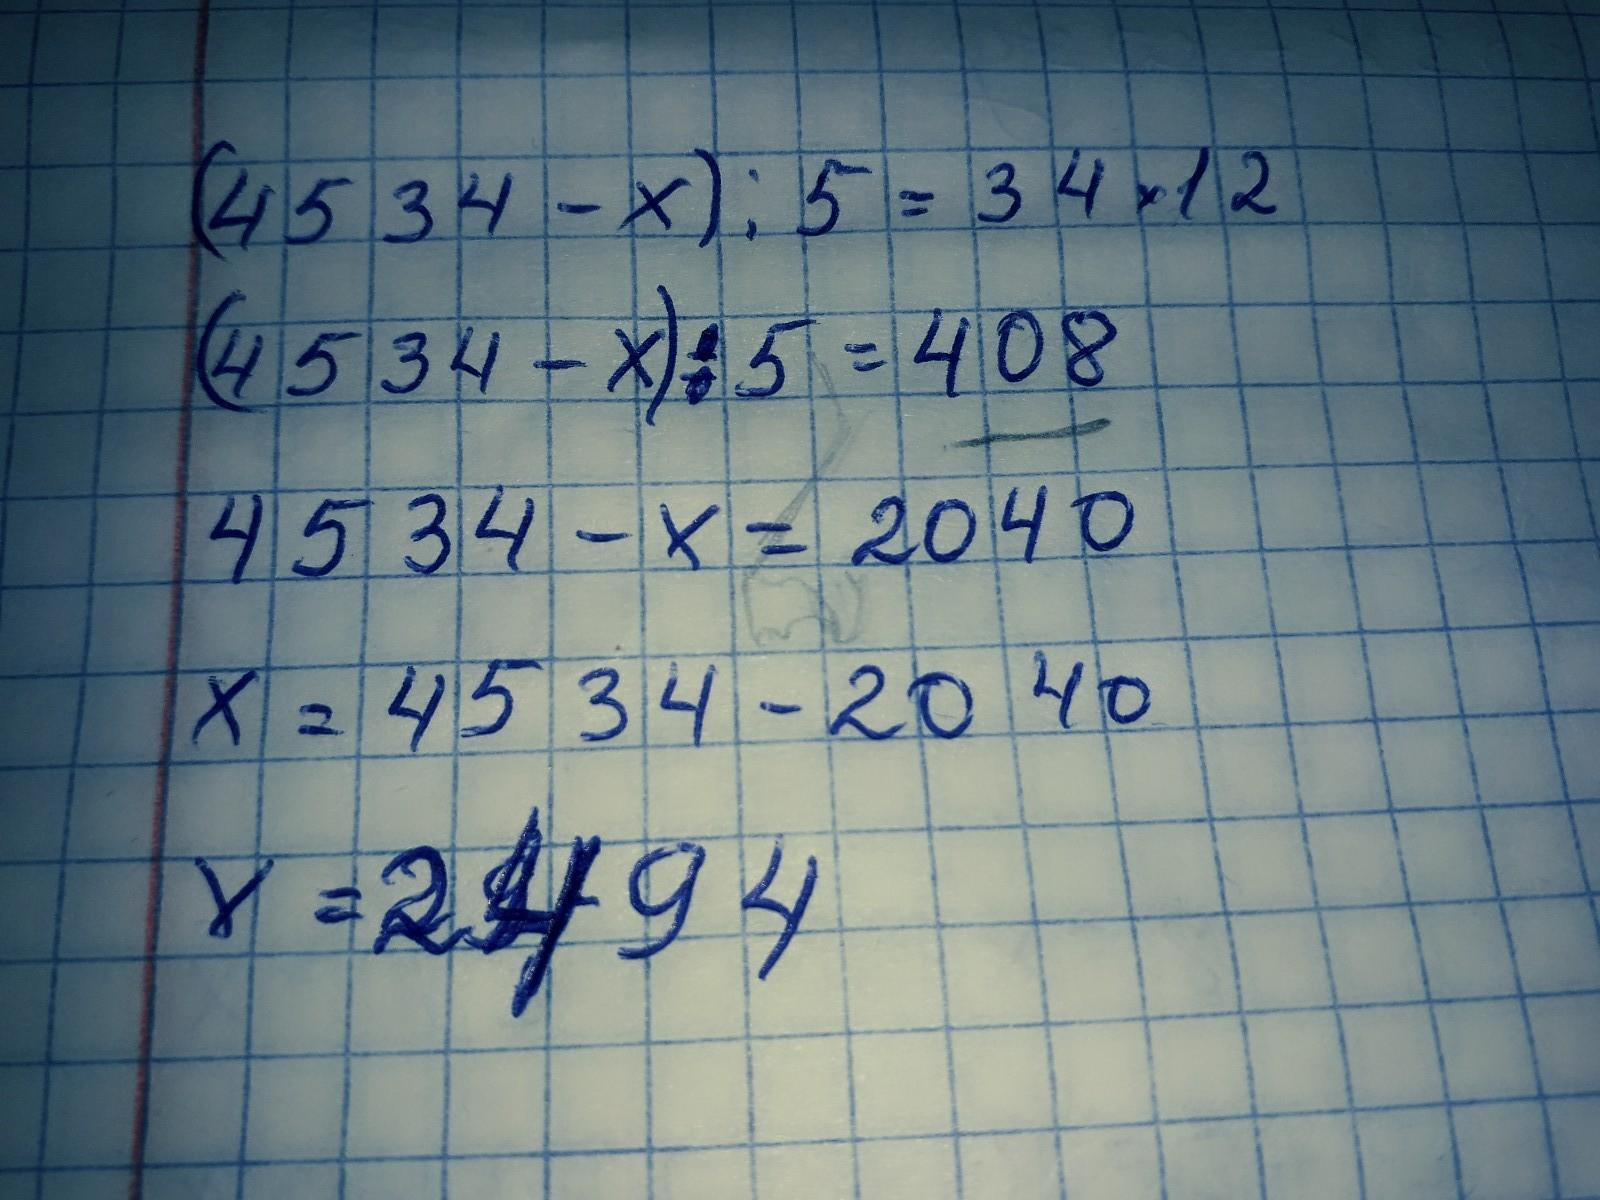 (4534 - x) : 5 = 34 × 12
(4534 - x) : 5 = 408
4534 - x = 2040
x = 4534 - 2040
x = 2494